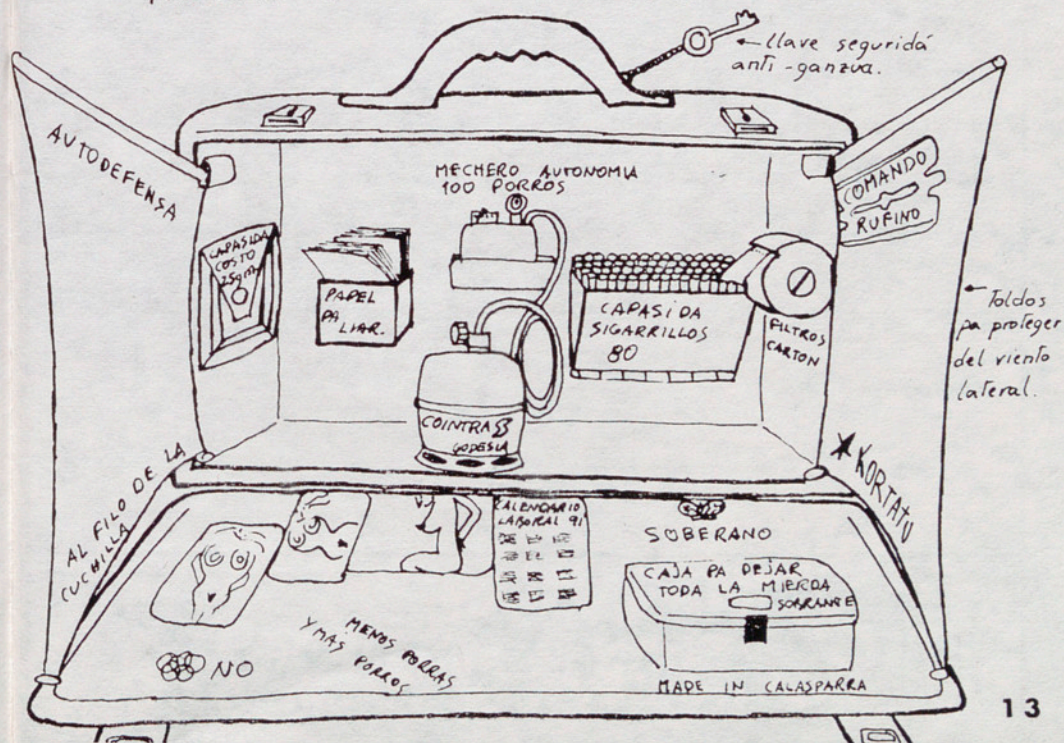 ← llave seguridá
anti-ganzua.
AUTODEFENSA
MECHERO AUTONOMIA
100 PORROS
COMANDO
RUFINO
CAPASIDA
COSTO
25gm
PAPEL
PA
LIAR.
CAPASIDA
SIGARRILLOS
80
FILTROS
CARTON
← Toldos
pa proteger
del viento
lateral.
COINTRA
GODESIA
AL FILO DE LA
CUCHILLA
★KORTATU
CALENDARIO
LABORAL 91
SOBERANO
CAJA PA DEJAR
TODA LA MIERDA
SOBRANTE
MENOS PORRAS
Y MAS PORROS
NO
MADE IN CALASPARRA
13